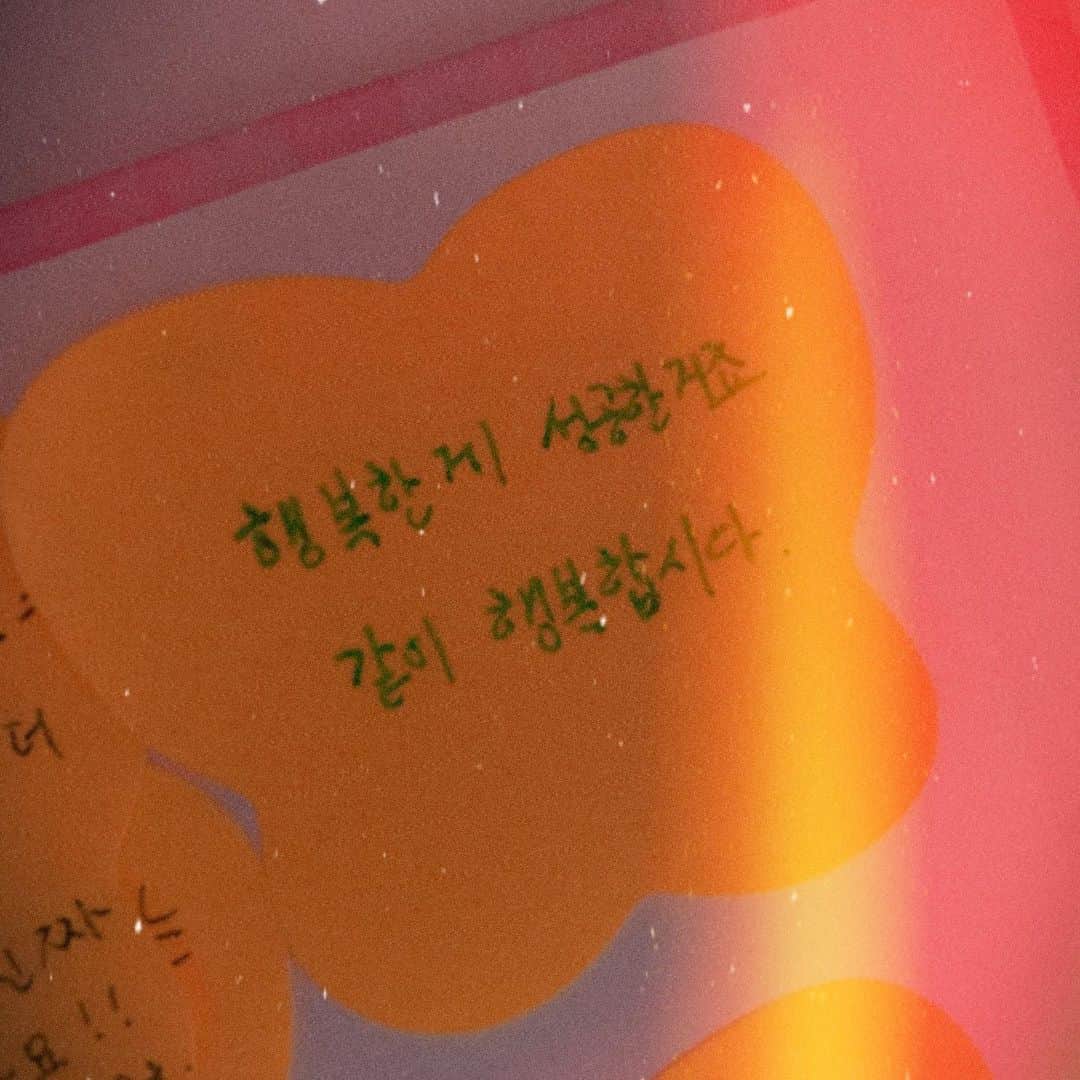 행복한게 성공한거죠
같이 행복합시다.
더
진짜
요!!